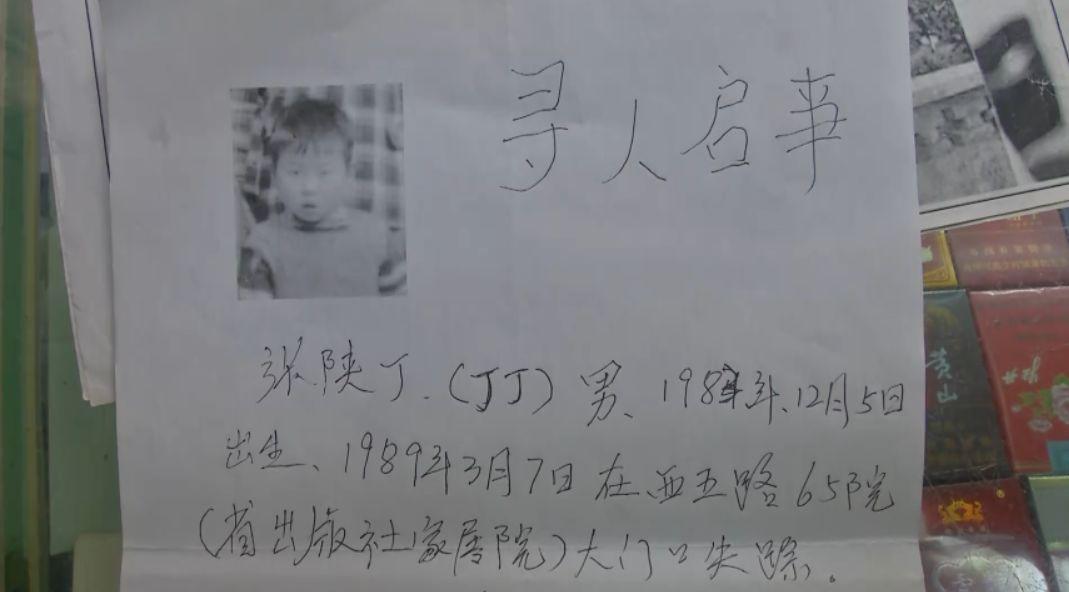 寻人启事
张陕丁.(丁丁)男、198年、12月5日
出生、1989年3月7日在西五路65院
(省出版社家属院)大门口失踪.
黄山